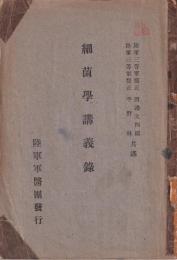 陸軍三等軍醫正
陸軍三等軍醫正 平野林 共講
細菌學講義錄
陸軍軍醫團發行